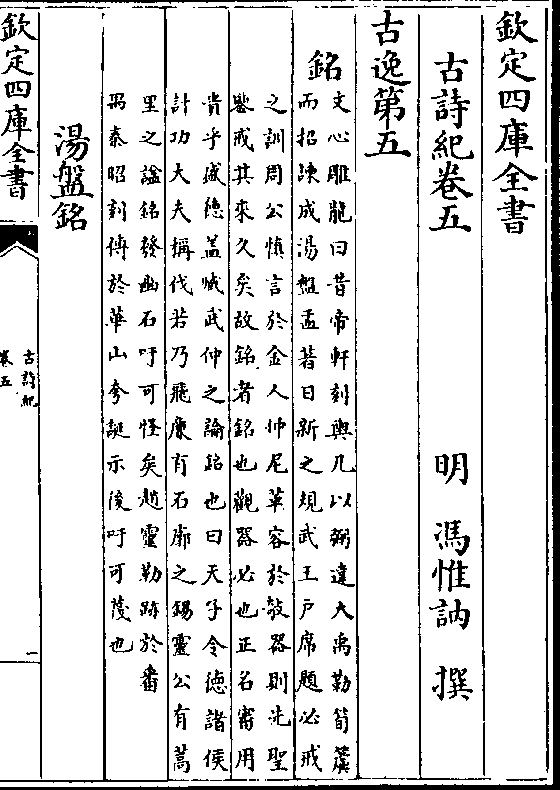 欽定四庫全書
古詩紀卷五 明 馮惟訥 撰
古逸第五
銘
文心雕龍曰昔帝軒刻輿几以弼違大禹勒筍簴
而招諫成湯盤盂著日新之規武王戶席題必戒
之訓周公慎言於金人仲尼革容於欹器則先聖
鑒戒其來久矣故銘者銘也觀器必也正名審用
貴乎盛德蓋臧武仲之論銘也曰天子令德諸侯
計功大夫稱伐若乃飛廉有石廓之錫靈公有蒿
里之諡銘發幽石吁可怪矣趙靈勒跡於番
禺秦昭刻傳於華山夸誕示後吁可茂也
湯盤銘
欽定四庫全書
古詩紀
卷五
一